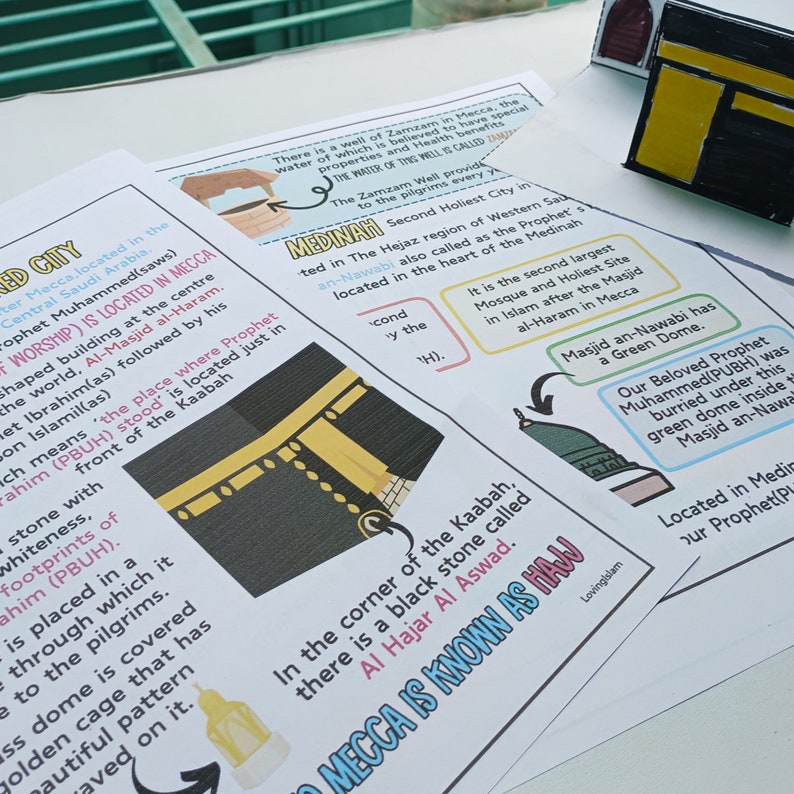 RED CITY
ter Mecca located in the
Central Saudi Arabia.
rophet Muhammed(saws)
OF WORSHIP) IS LOCATED IN MECCA
shaped building at the centre
the world, Al-Masjid al-Haram.
het Ibrahim(as) followed by his
on Islamil(as)
ich means 'the place where Prophet
rahim (PBUH) stood' is located just in
front of the Kaabah
stone with
whiteness,
footprints of
rahim (PBUH).
is placed in a
through which it
e to the pilgrims.
ss dome is covered
golden cage that has
eautiful pattern
raved on it.
In the corner of the Kaabah,
there is a black stone called
Al Hajar Al Aswad.
O MECCA IS KNOWN AS HAJJ
LovingIslam
There is a well of Zamzam in Mecca, the
water of which is believed to have special
properties and Health benefits
THE WATER OF THIS WELL IS CALLED ZAMZA
The Zamzam Well provid
to the pilgrims every y
MEDINAH Second Holiest City in
ted in The Hejaz region of Western Sau
an-Nawabi also called as the Prophet's
located in the heart of the Medinah
cond
by the
H).
It is the second largest
Mosque and Holiest Site
in Islam after the Masjid
al-Haram in Mecca
Masjid an-Nawabi has
a Green Dome.
Our Beloved Prophet
Muhammed(PUBH) was
burried under this
green dome inside th
Masjid an-Nawa
Located in Medin
our Prophet(P